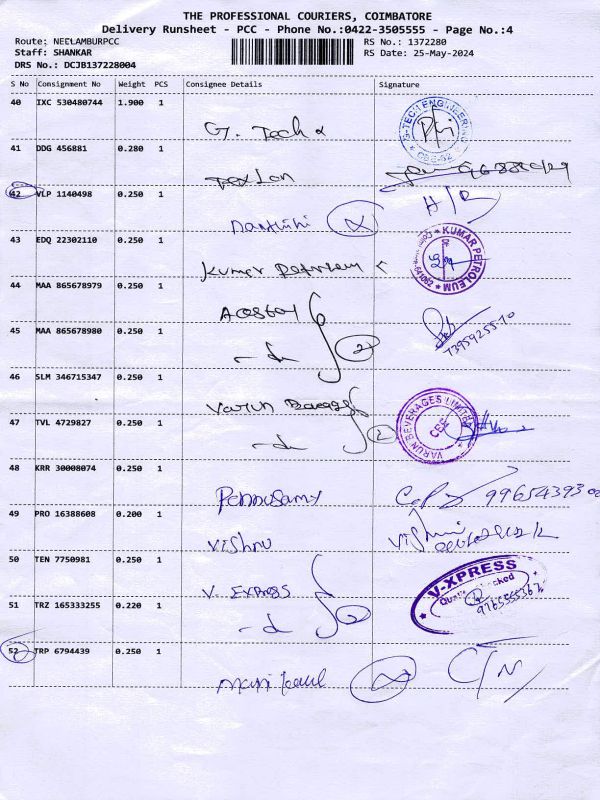 THE PROFESSIONAL COURIERS, COIMBATORE
Delivery Runsheet - PCC - Phone No.:0422-3505555 - Page No.:4
Route: NEELAMBURPCC RS No.: 1372280
Staff: SHANKAR RS Date: 25-May-2024
DRS No.: DCJB137228004
S No Consignment No Weight PCS Consignee Details Signature
40 IXC 530480744 1.900 1
G. Tech
G-TECH ENGINEERING
41 DDG 456881 0.280 1
42 VLP 1140498 0.250 1
43 EDQ 22302110 0.250 1
Kumar Petroleum
KUMAR PETROLEUM
44 MAA 865678979 0.250 1
45 MAA 865678980 0.250 1
2
46 SLM 346715347 0.250 1
Varun
VARUN BEVERAGES LIMITED
47 TVL 4729827 0.250 1
2
48 KRR 30008074 0.250 1
Ponnusamy
49 PRO 16388608 0.200 1
Vishnu
50 TEN 7750981 0.250 1
V. EXPRESS
V-XPRESS
51 TRZ 165333255 0.220 1
2
52 TRP 6794439 0.250 1